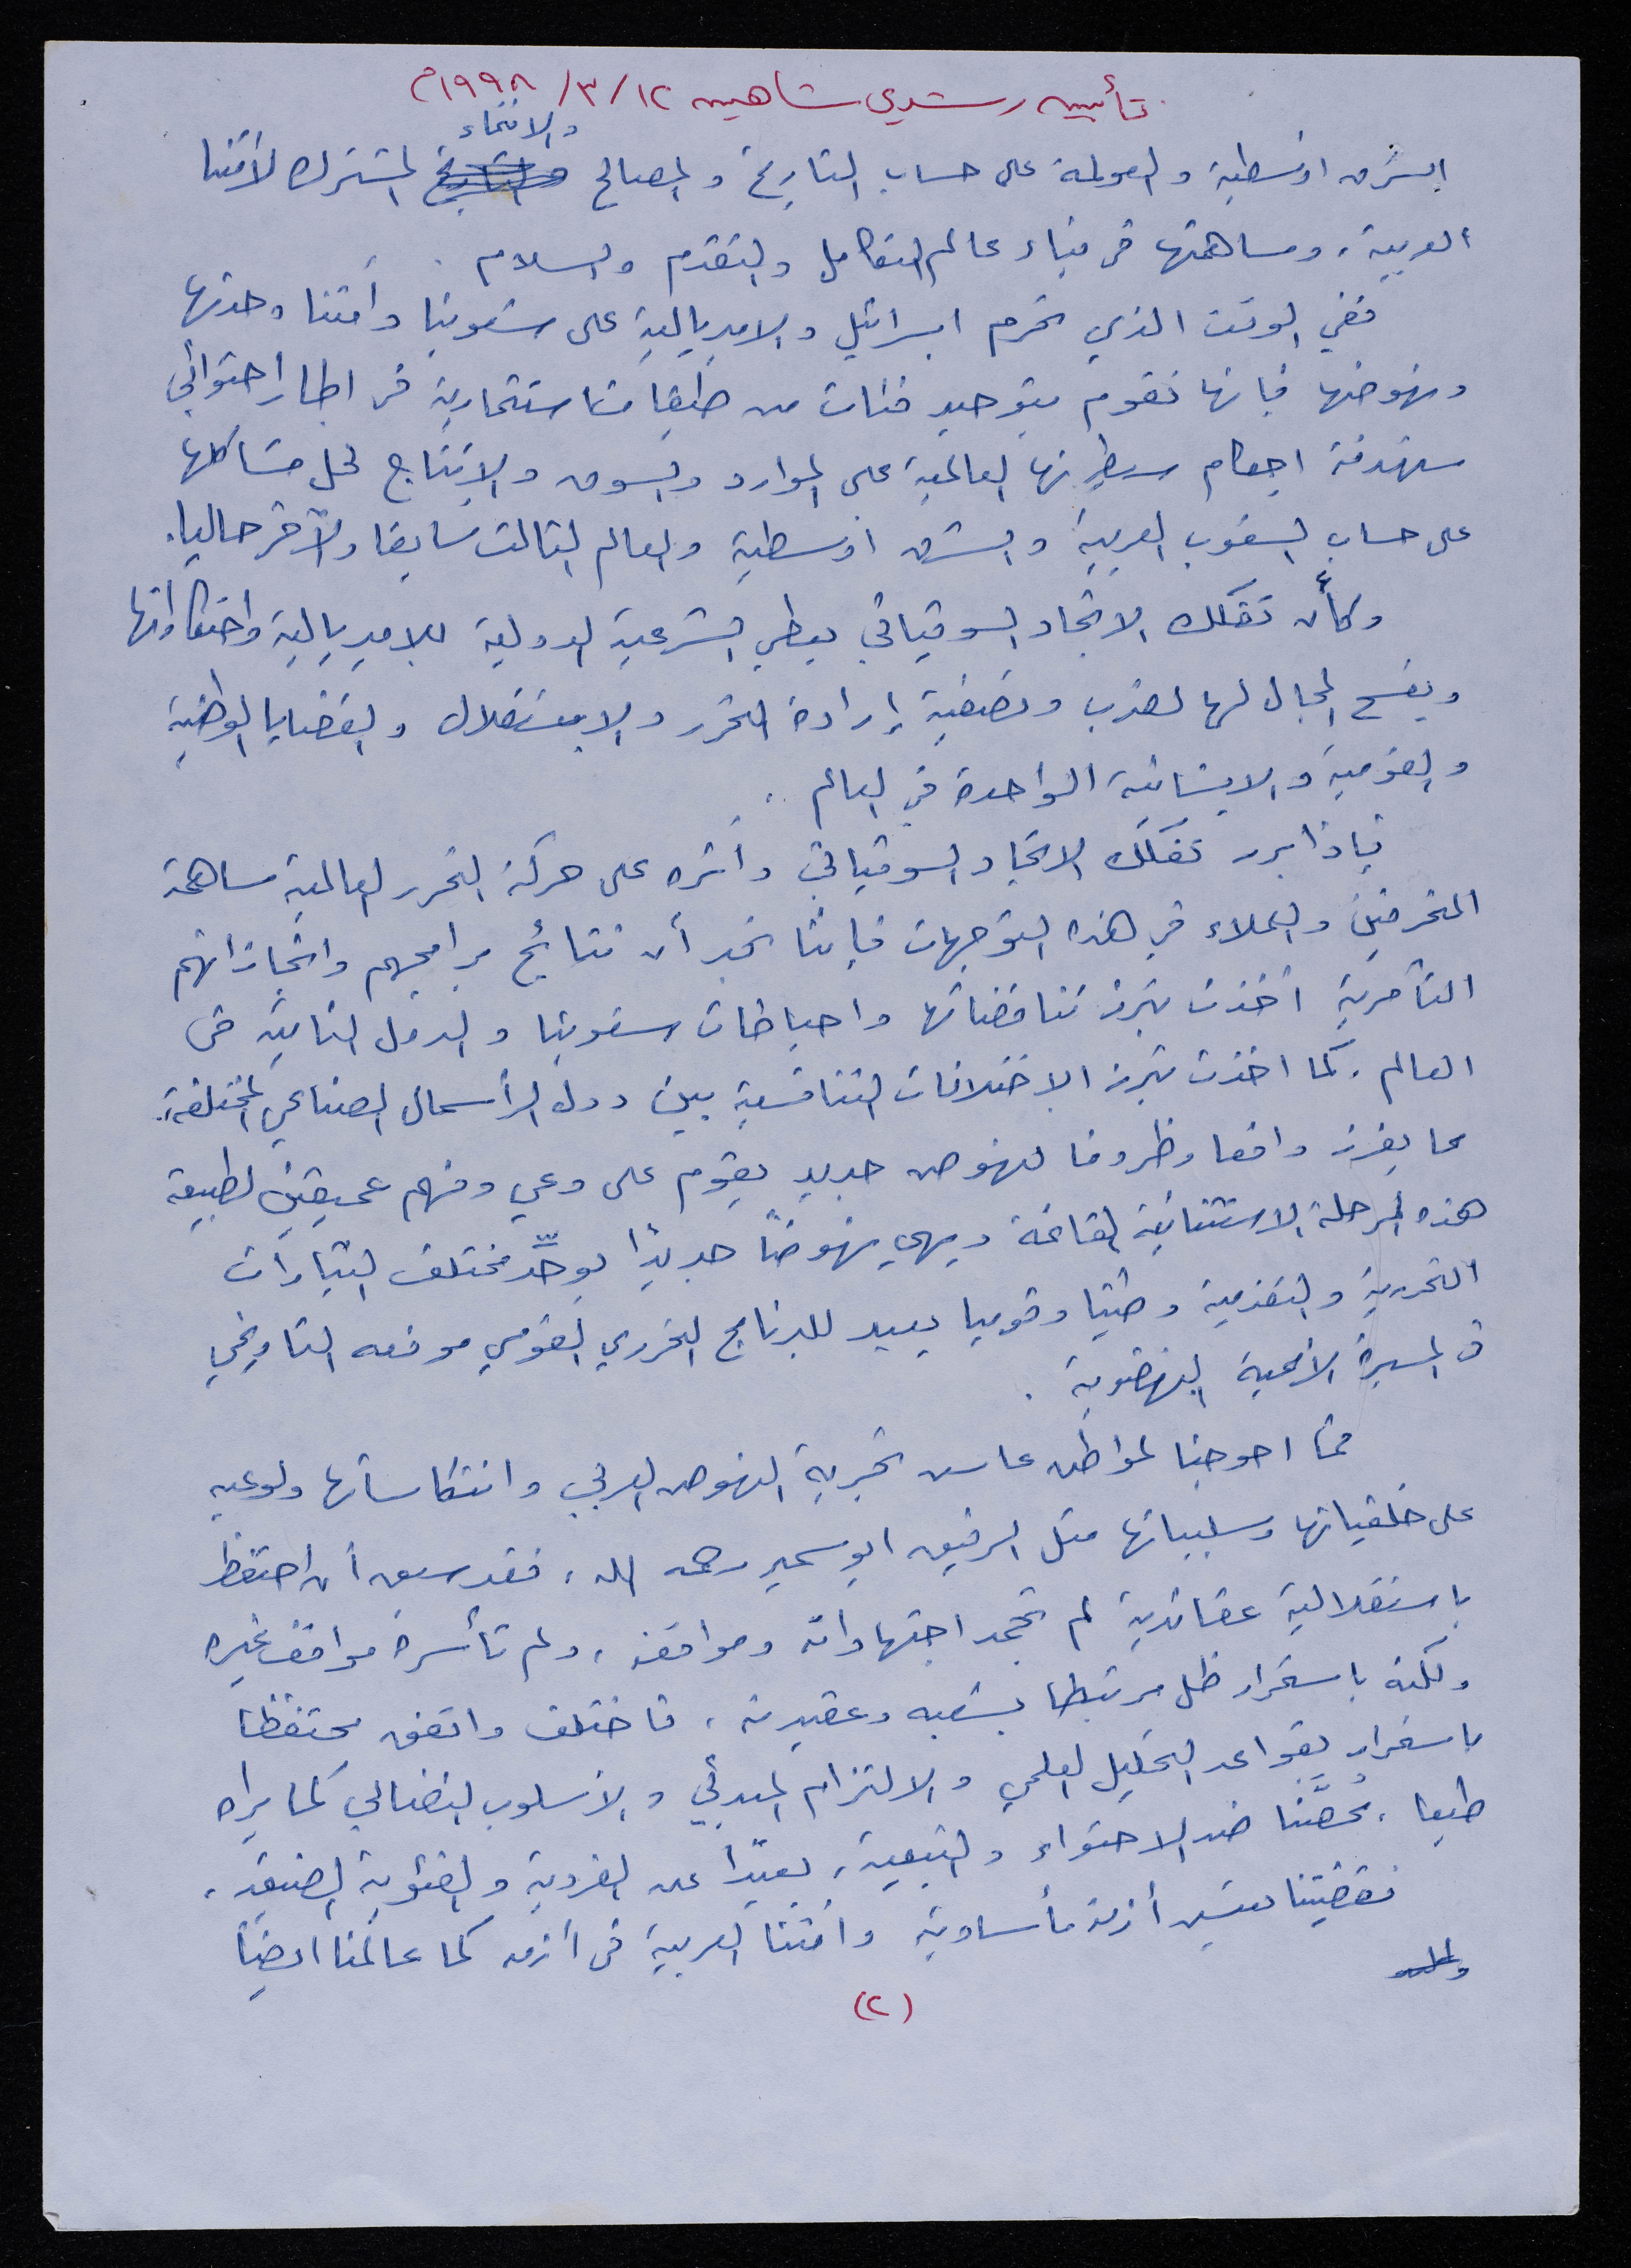 تأبين رشدي شاهين ١٢/٣/١٩٩٨م
والانتماء
الشرق اوسطية والعولمة على حساب التاريخ والمصالح والتاريخ المشترك لأمتنا
العربية، ومساهمتها في بناء عالم التكامل والتقدم والسلام.
ففي الوقت الذي تحرم اسرائيل والامبريالية على شعوبنا وأمتنا وحدتها
ونهوضها فإنها تقوم بتوحيد فئات من طبقاتنا استثمارية في اطار احتوائي
مستهدفة احكام سيطرتها العالمية على الموارد والسوق والانتاج لحل مشاكلها
على حساب الشعوب العربية والشرق اوسطية والعالم الثالث سابقا والآخر حاليا.
وكأن تفكك الاتحاد السوفياتي يعطي الشرعية الدولية للامبريالية واحتكاراتها
ويفسح المجال لها لضرب وتصفية إرادة التحرر والاستقلال والقضايا الوطنية
والقومية والانسانية الواحدة في العالم.
فإذا برر تفكك الاتحاد السوفياتي وأثره على حركة التحرر العالمية مساهمة
المنحرفين والعملاء في هذه التوجهات فإننا نجد أن نتائج برامجهم وانجازاتهم
التآمرية أخذت تبرز تناقضاتها واحباطات شعوبنا والدول النامية في
العالم. كما اخذت تبرز الاختلافات التنافسية بين دول الرأسمال الصناعي المختلفة.
مما يفرز واقعا وظروفا لنهوض جديد يقوم على وعي وفهم عميقين لطبيعة
هذه المرحلة الاستثنائية القائمة ويهيء نهوضاً جديداً يوحّد مختلف التيارات
التحررية والتقدمية وطنيا وقوميا يعيد للبرنامج التحرري القومي موقعه التاريخي
في المسيرة الأممية النهضوية.
فما احوجنا لمواطن عاش تجربة النهوض العربي وانتكاساتها ولوعيه
على خلفياتها وسلبياتها مثل الرفيق ابو سمير رحمه الله، فقد سبق أن احتفظ
باستقلالية عقائدية لم تجمد اجتهاداته ومواقفه، ولم تأسره مواقف غيره
ولكنه باستمرار ظل مرتبطا بشعبه وعقيدته، فاختلف واتفق محتفظا
باستمرار بقواعد التحليل العلمي والالتزام المبدئي والاسلوب النضالي كما يراه
طبعا، محصَّنا ضد الاحتواء والتبعية، بعيداً عن الفردية والفئوية الضيقة.
فقضيتنا تعيش أزمة مأساوية وأمتنا العربية في أزمة كما عالمنا ايضاً
(٢)